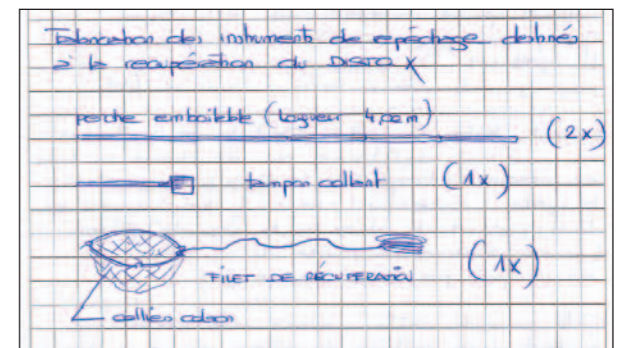 Fabrication des instruments de repéchage destinés
à la recupération du DISTO X
perche emboitable (longueur 4,00m)
(2x)
tampon collant (1x)
FILET DE RÉCUPERATION (1x)
collier colson